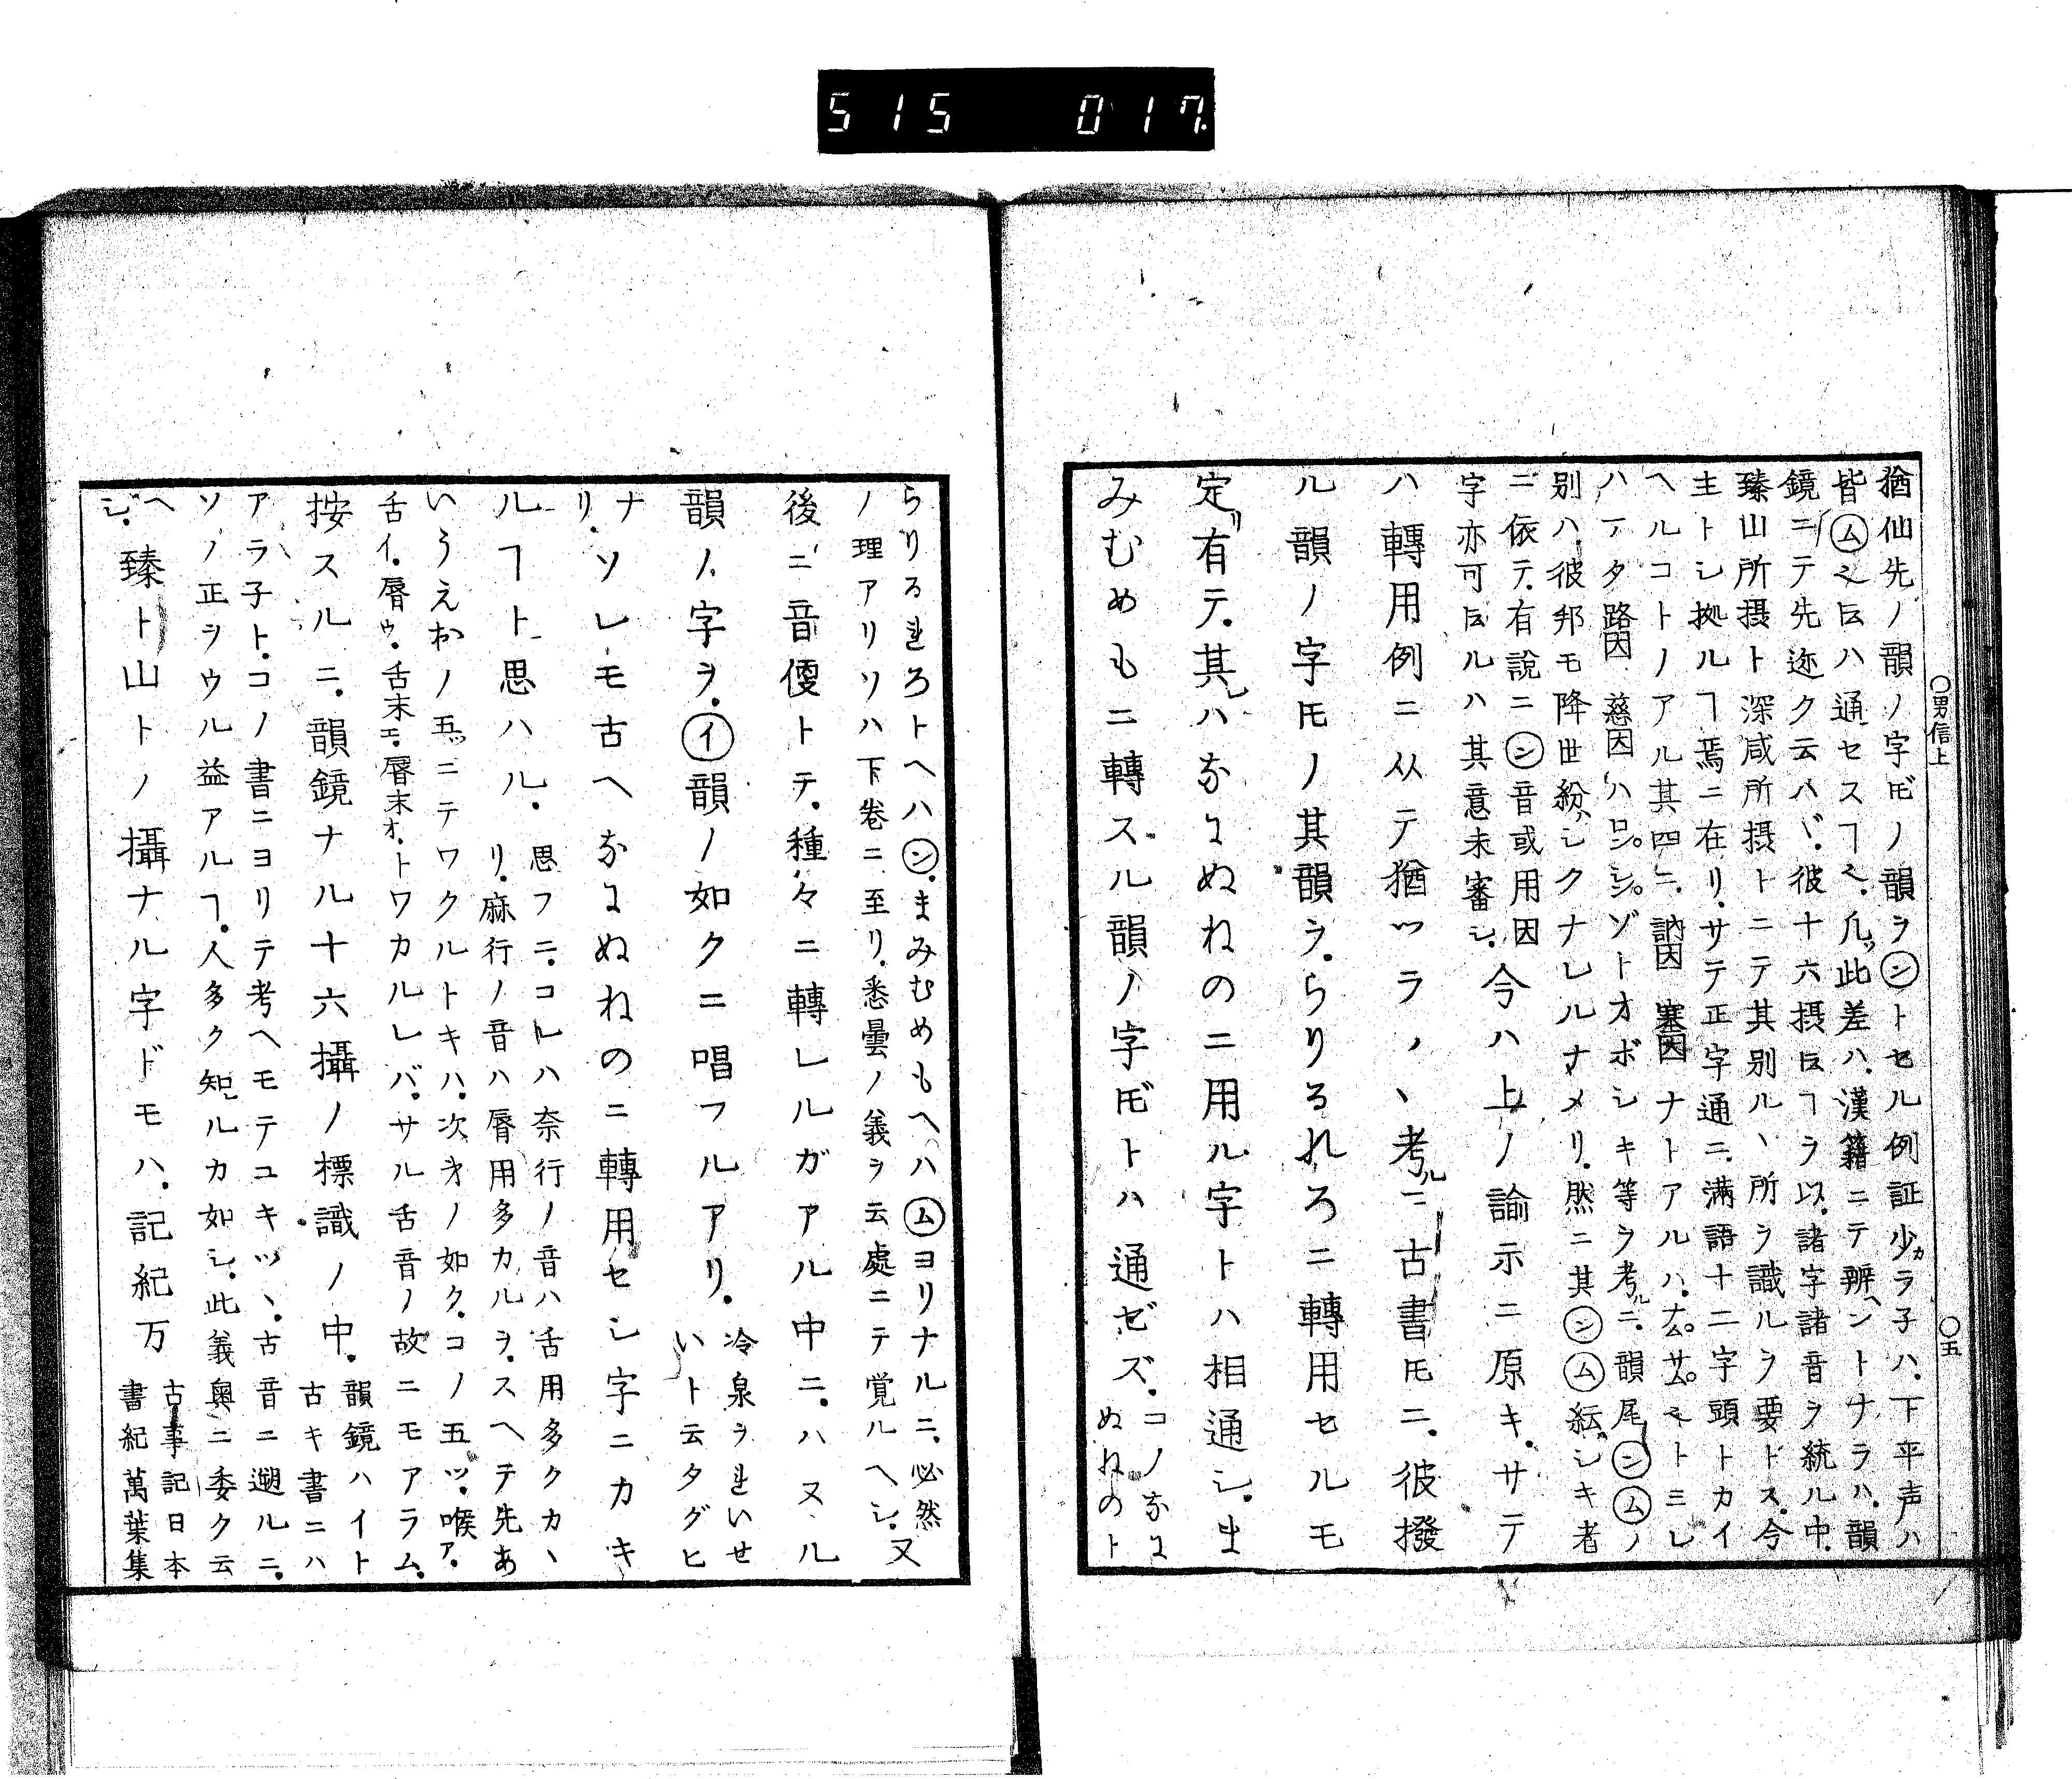 515 017.
〇男信上
〇五
猶仙先ノ韻ノ字𪜈ノ韻ヲㇴントセル例証少カラ子ハ、下平声ハ
皆ムㇸ𪜈ハ通セスヿ也。凡此差ハ、漢籍ニテ辨ヘントナラハ、韻
鏡ニテ先迩ク云ハヾ、彼十六摂𪜈ヿヲ以、諸字諸音ヲ統ル中、
臻山所摂ト深咸所摂トニテ其別ル、所ヲ識ルヲ要ドス。今
主トシ拠ルヿ焉ニ在リ。サテ正字通ニ、満語十二字頭トカイ
ヘルコトノアル其四ニ、訥因 塞因ナトアルハ、ナム。サム。也トミレ
ハアタ路因 慈因ハロン。シン。ゾトオボシキ等ヲ考ルニ、韻尾ンムノ
別ハ、彼邦モ降世紛シクナレルナメリ。然ニ其ンム紜シキ者
ニ依テ、有説ニン音或用因
字亦可𪜈ルハ其意未審シ。今ハ上ノ諭示ニ原キ。サテ
ハ轉用例ニ从テ猶ツラヽヽ考ルニ古書𪜈ニ、彼撥
ル韻ノ字𪜈ノ其韻ヲ、らりるれろニ轉用セルモ
定リ有テ、其レハなにぬねのニ用ル字トハ相通シ、ま
みむめもニ轉スル韻ノ字𪜈トハ通ゼズ。コノなに
ぬねのト
らりるれろトヘハン。まみむめもヘハムヨリナルニ、必然
ノ理アリソハ下巻ニ至リ、悉曇ノ義ヲ云處ニテ覚ルヘシ。又
後ニ音便トテ、種々ニ轉レルガアル中ニ、ハヌル
韻ノ字ヲ、イ韻ノ如クニ唱フルアリ。冷泉ヲれいせ
いト云タグヒ
ナリ。ソレモ古ヘなにぬねのニ轉用セシ字ニカキ
ルヿト思ハル。思フニ、コレハ奈行ノ音ハ舌用多クカヽ
リ、麻行ノ音ハ脣用多カルヲ、スヘテ先あ
いうえおノ五ツニテワクルトキハ、次才ノ如ク、コノ五ツ、喉ア。
舌イ。脣ウ。舌末エ。脣末オ。トワカルレバ、サル舌音ノ故ニモアラム。
按スルニ、韻鏡ナル十六攝ノ標識ノ中、韻鏡ハイト
古キ書ニハ
アラ子ト、コノ書ニヨリテ考ヘモテユキツヽ、古音ニ遡ルニ、
ソノ正ヲウル益アルヿ、人多ク知ルカ如シ、此義奥ニ委ク云
ヘシ。臻ト山トノ攝ナル字ドモハ、記紀万古事記日本
書紀萬葉集